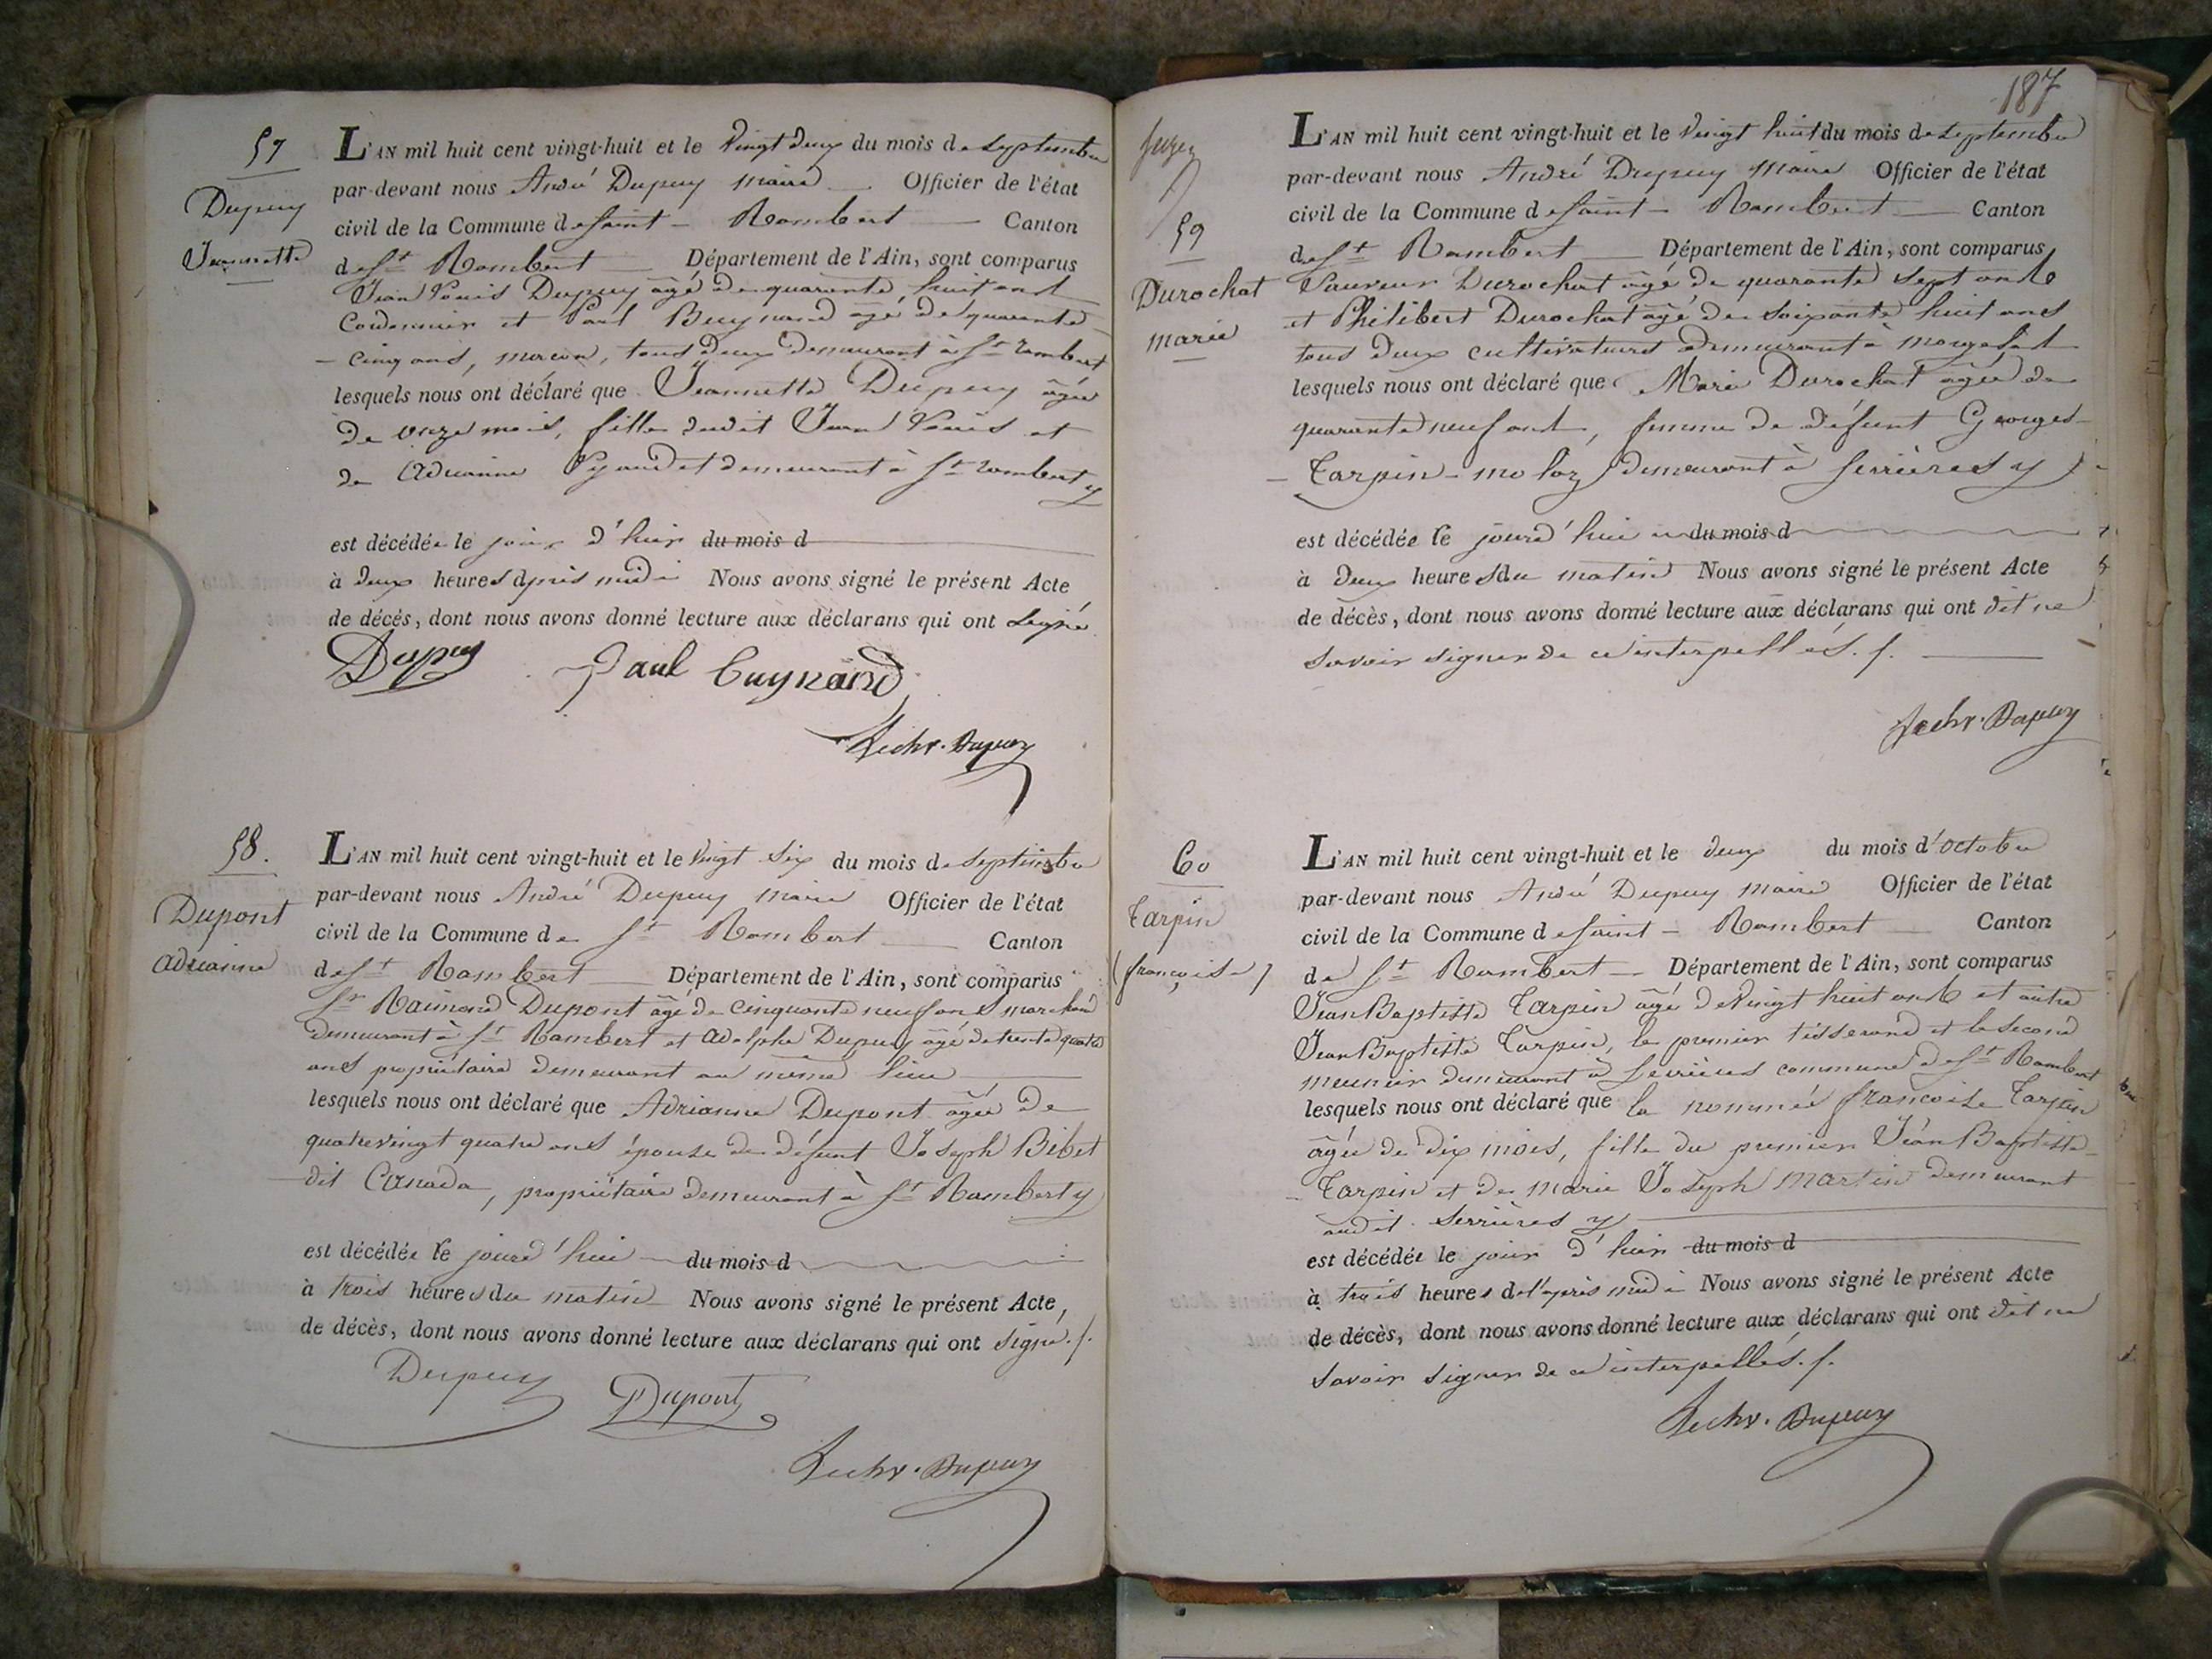 57
Dupuy
Jeannette
L'AN mil huit cent vingt-huit et le vingt deux du mois de septembre
par-devant nous André Dupuy maire Officier de l'état
civil de la Commune de Saint-Rambert Canton
de St Rambert Département de l'Ain, sont comparus
Jean Louis Dupuy âgé de quarante huit ans
Cordonnier et Paul Buynand âgé de quarante
cinq ans, macon, tous deux demeurant à St rambert
lesquels nous ont déclaré que Jeannette Dupuy âgée
de onze mois, fille dudit Jean Louis et
de Adrianne demeurant à St rambert
est décédée le jour d'hier du mois d
à deux heures après midi Nous avons signé le présent Acte
de décès, dont nous avons donné lecture aux déclarans qui ont signé
Dupuy Paul Buynand
Dupuy
58.
Dupont
adrianne
L'AN mil huit cent vingt-huit et le vingt six du mois de septembre
par-devant nous André Dupuy maire Officier de l'état
civil de la Commune de St Rambert Canton
de St Rambert Département de l'Ain, sont comparus
Sr Raimond Dupont âgé de cinquante neuf ans marchand
demeurant à St Rambert et adolphe Dupuy âgé de trente quatre
ans propriétaire demeurant au même lieu
lesquels nous ont déclaré que Adrianne Dupont âgée de
quatrevingt quatre ans épouse de défunt Joseph Bibet
dit Canada, propriétaire demeurant à St Rambert
est décédée le jourd'hui du mois d
à trois heures du matin Nous avons signé le présent Acte,
de décès, dont nous avons donné lecture aux déclarans qui ont signé./.
Dupuy Dupont
Dupuy
187
59
Durochat
marie
L'AN mil huit cent vingt-huit et le vingt huit du mois de septembre
par-devant nous André Dupuy maire Officier de l'état
civil de la Commune de Saint-Rambert Canton
de St Rambert Département de l'Ain, sont comparus
Durochat âgé de quarante sept ans
et Philibert Durochat âgé de soixante huit ans
tous deux cultivateurs demeurant à
lesquels nous ont déclaré que Marie Durochat âgée de
quarante neuf ans, femme de défunt Georges
Tarpin-moloz demeurant à Serrières
est décédée le jourd'hui du mois d
à deux heures du matin Nous avons signé le présent Acte
de décès, dont nous avons donné lecture aux déclarans qui ont dit ne
savoir signer de ce interpellés./.
Dupuy
60
Tarpin
(françoise)
L'AN mil huit cent vingt-huit et le deux du mois d'octobre
par-devant nous André Dupuy maire Officier de l'état
civil de la Commune de Saint-Rambert Canton
de St Rambert Département de l'Ain, sont comparus
Jean Baptiste Tarpin âgé de vingt huit ans et autre
Jean Baptiste Tarpin, le premier tisserand et le second
meunier demeurant à Serrières commune de St Rambert
lesquels nous ont déclaré que la nommée françoise Tarpin
âgée de dix mois, fille du premier Jean Baptiste
Tarpin et de marie Joseph martin demeurant
audit Serrières
est décédée le jour d'hier du mois d
à trois heures de l'après midi Nous avons signé le présent Acte
de décès, dont nous avons donné lecture aux déclarans qui ont dit ne
savoir signer de ce interpellés./.
Dupuy